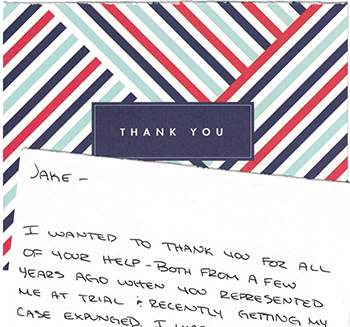 THANK YOU
JAKE -
I WANTED TO THANK YOU FOR ALL
OF YOUR HELP - BOTH FROM A FEW
YEARS AGO WHEN YOU REPRESENTED
ME AT TRIAL & RECENTLY GETTING MY
CASE EXPUNGED. I